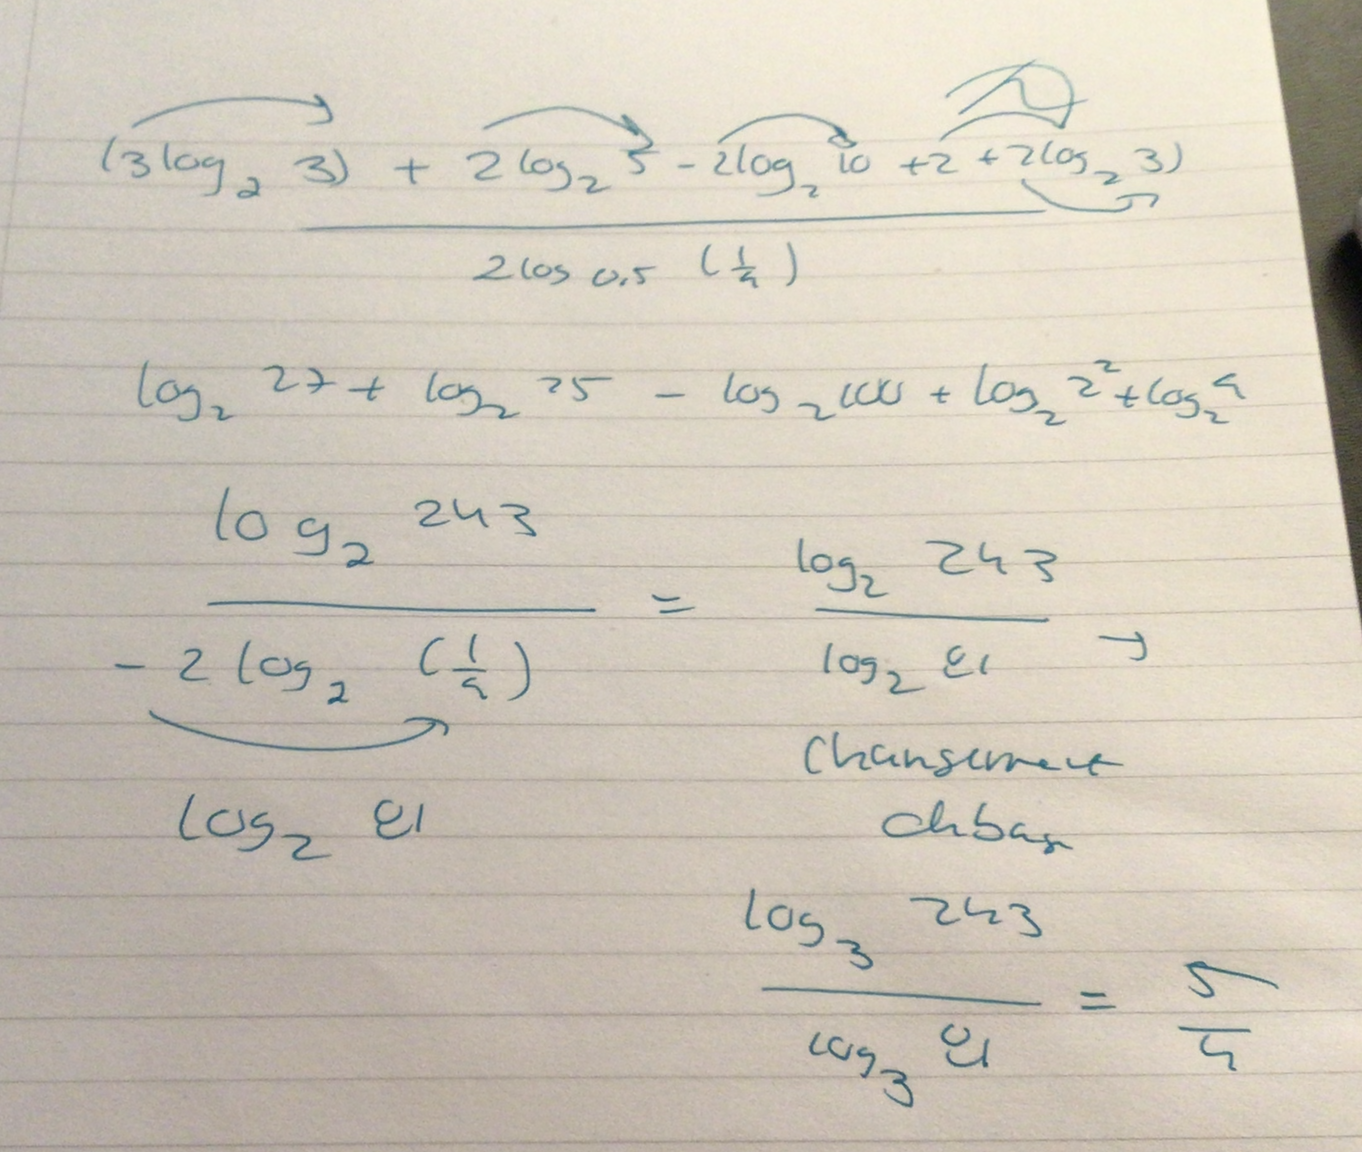 (3log₂ 3) + 2log₂ 5 - 2log₂ 10 + 2 + 2log₂ 3)
2log 0,5 (1/9)
log₂ 27 + log₂ 25 - log₂ 100 + log₂ 2² + log₂ 9
log₂ 243
- 2 log₂ (1/9)
= log₂ 243 / log₂ 81
log₂ 81
Changement
de base
log₃ 243 / log₃ 81 = 5/4